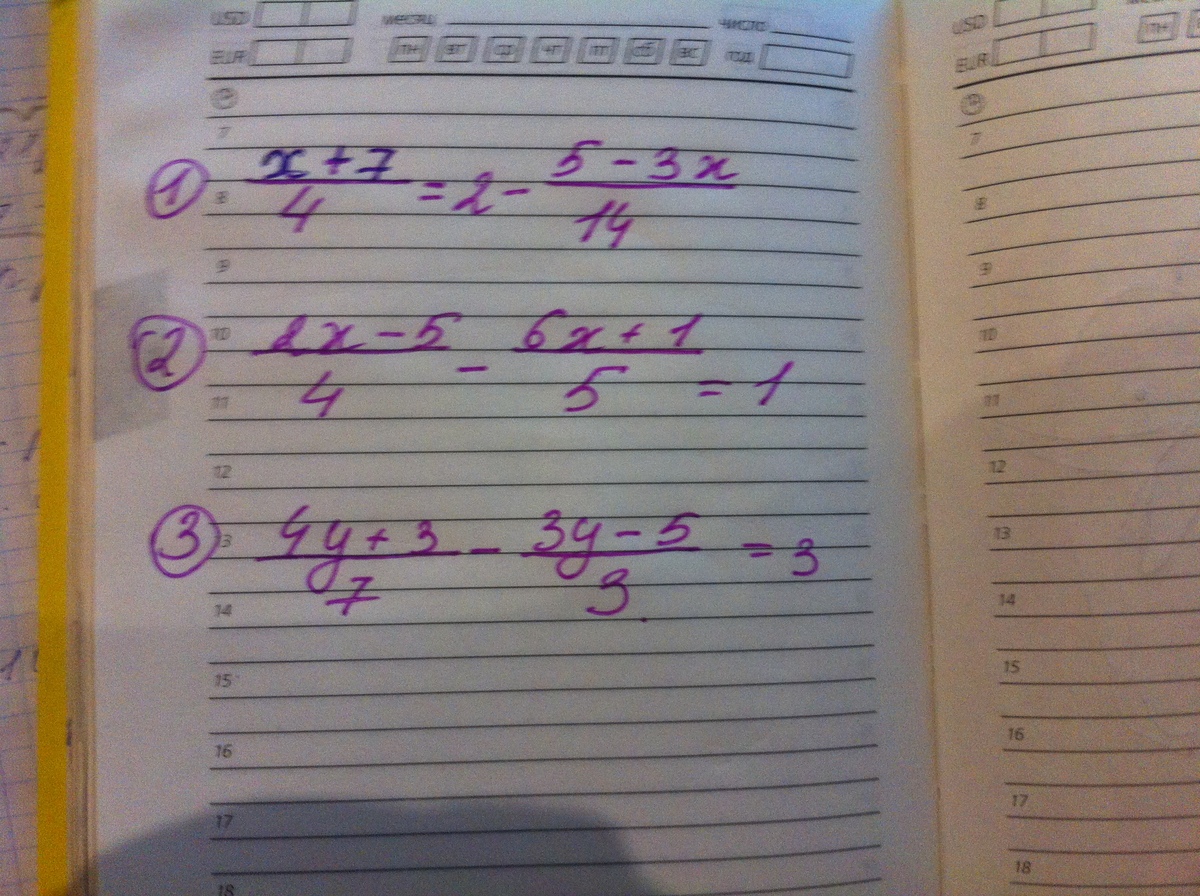 USD месяц число USD
EUR пн вт ср чт пт сб вс год EUR пн
7 7
① x+7/4 = 2 - 5-3x/14
8 8
9 9
10 10
② 2x-5/4 - 6x+1/5 = 1
11 11
12 12
③ 4y+3/7 - 3y-5/3 = 3
13 13
14 14
15 15
16 16
17 17
18 18